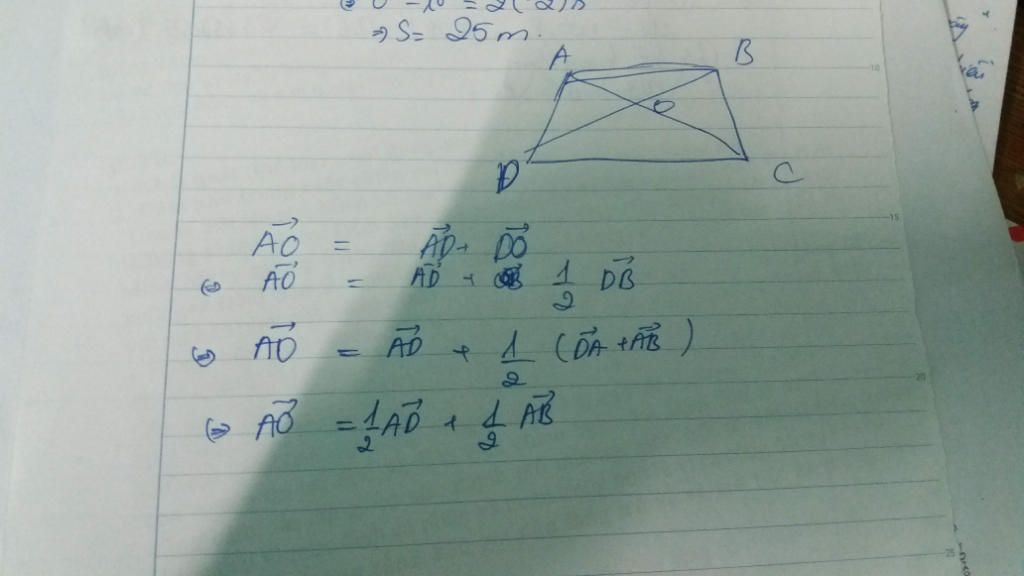 ⇒ S = 25 m.
A B
O
D C
AO⃗ = AD⃗ + DO⃗
⇔ AO⃗ = AD⃗ + 1/2 DB⃗
⇔ AO⃗ = AD⃗ + 1/2 (DA⃗ + AB⃗)
⇔ AO⃗ = 1/2 AD⃗ + 1/2 AB⃗
10
15
20
25